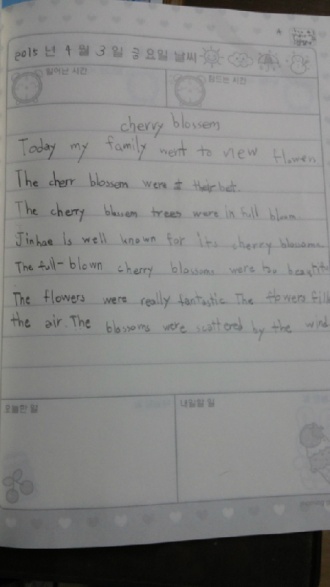 2015 년 4 월 3 일 금 요일 날씨
일어난 시간 잠드는 시간
cherry blossem
Today my family went to view flowers
The cherr blossem were their best.
The cherry blossen trees were in full bloom
Jinhae is well known for its cherry blossoms
The full-blown cherry blossoms were so beautiful
The flowers were really fantastic The flowers fill
the air. The blossoms were scattered by the wind
오늘한 일 내일할 일